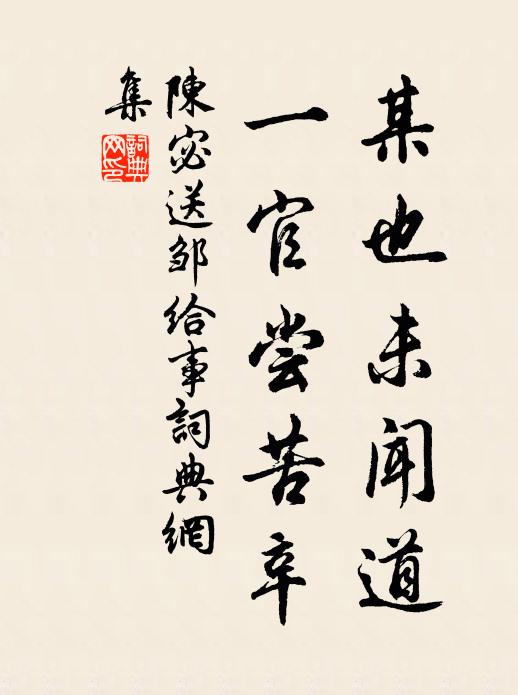 某也未闻道
一官尝苦辛
陳宓送邹给事詞典網
集
詞典
网印